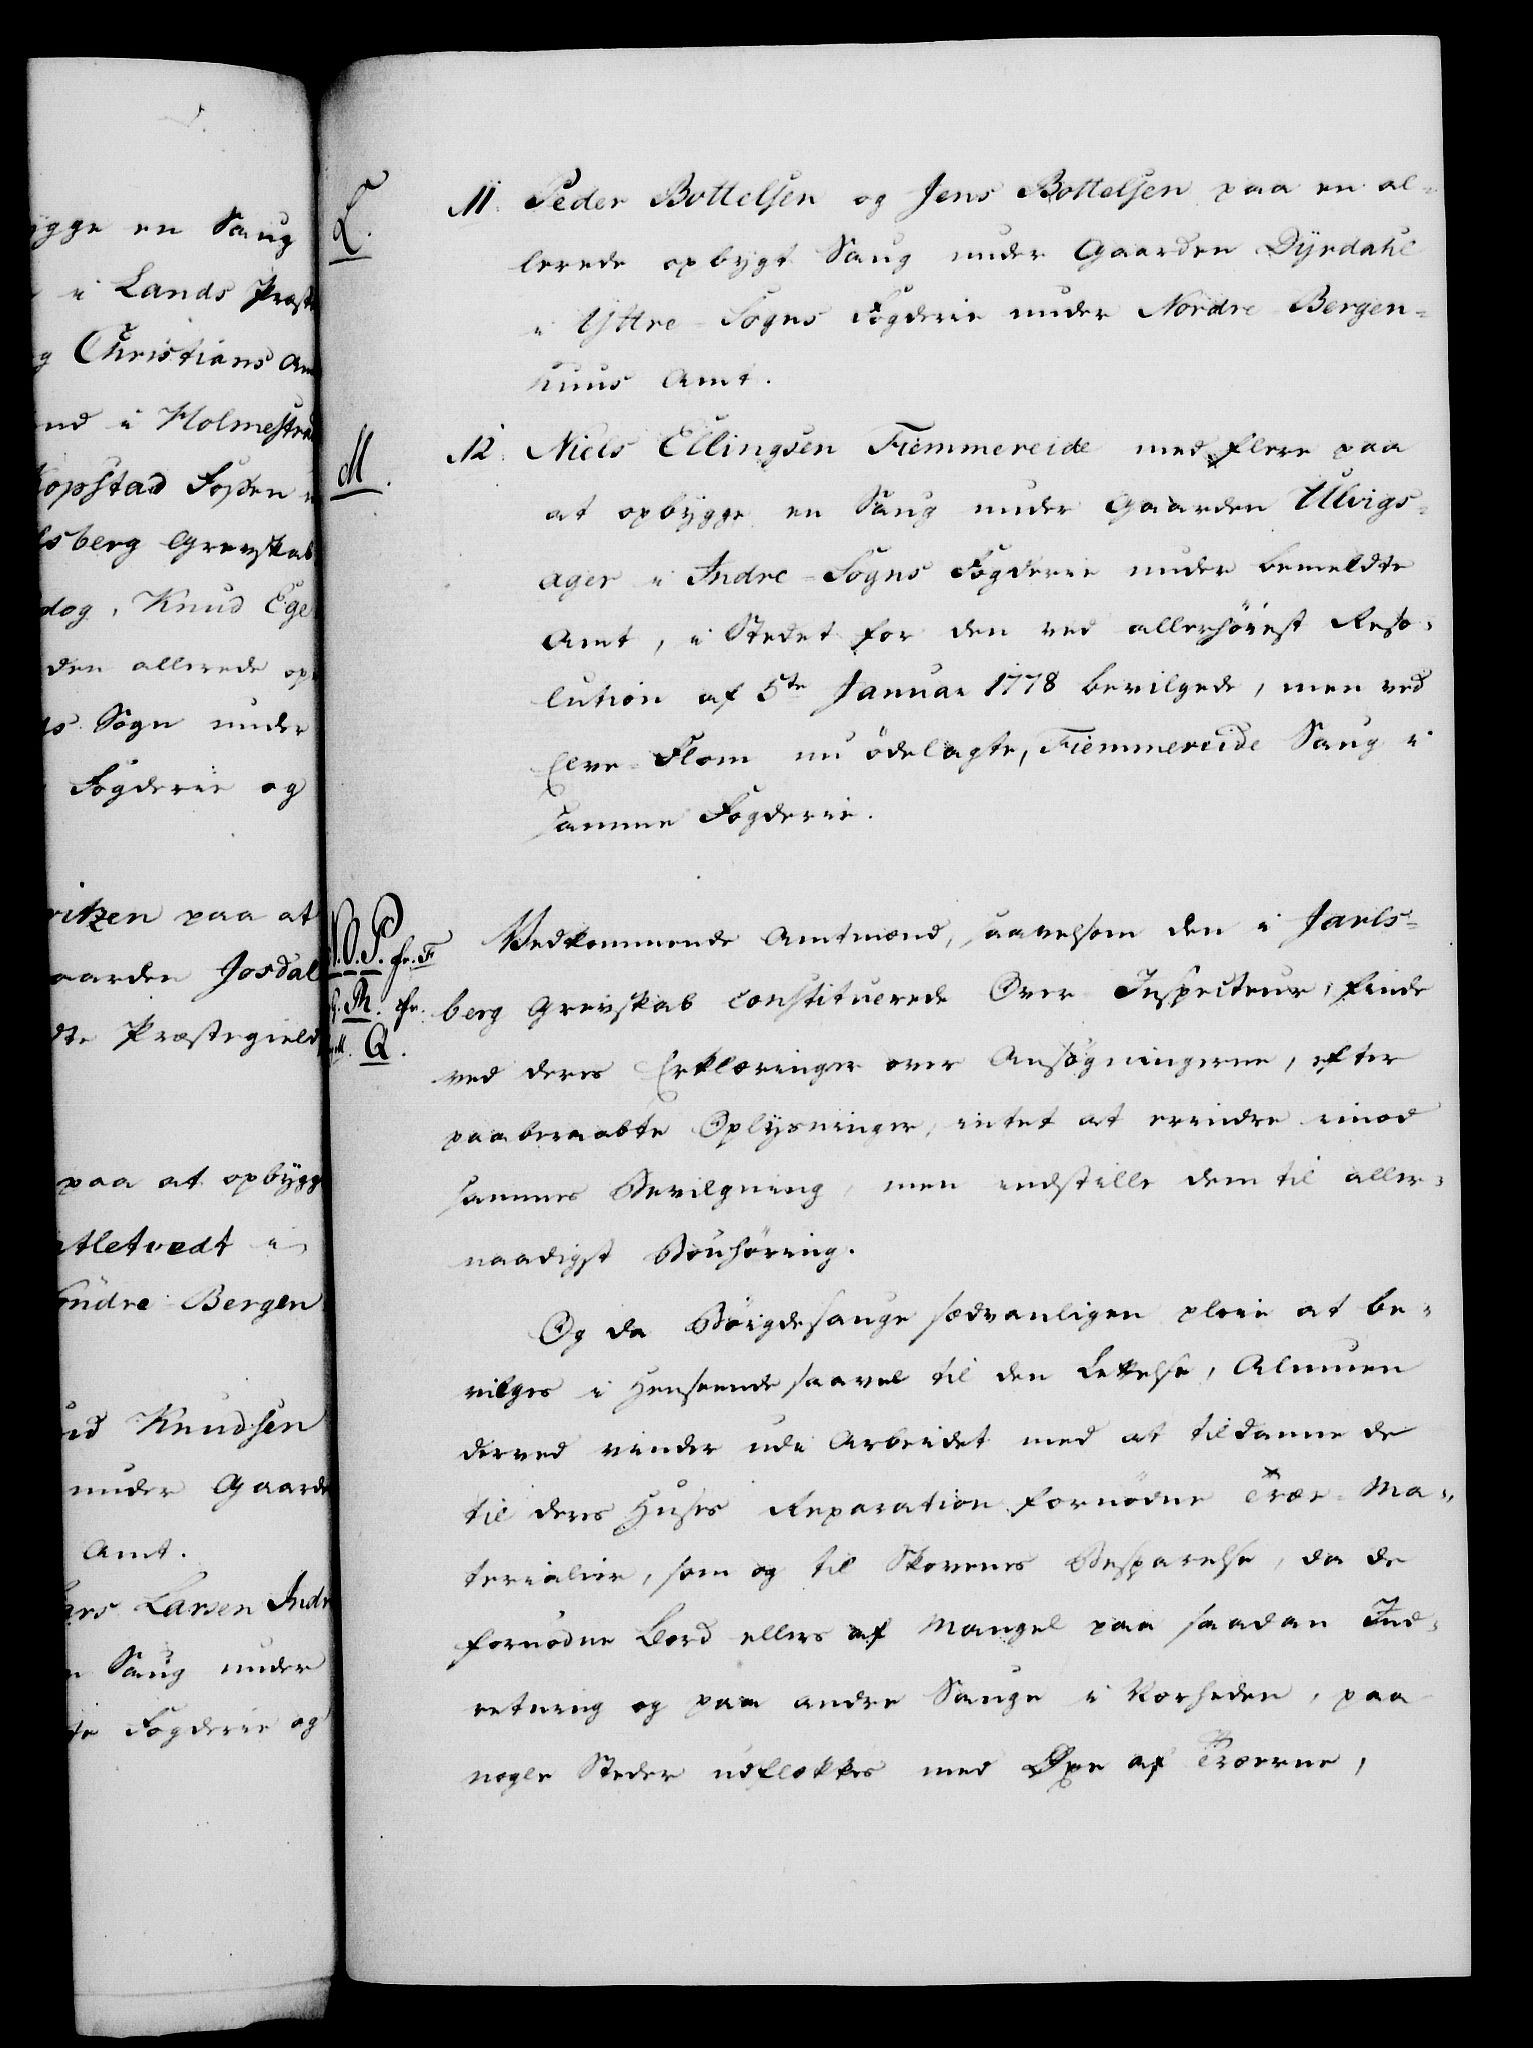 ygge en Saug
i Lands Præste
g Christians Am
nd i Holmestra
Kopstad Fossen
lsberg Grevskab
dog, Knud Ege
den allerede op
Sogn under
Fogderie og
ritzen paa at
aarden Josdal
dte Præstegield
paa at opbygg
tletvedt i
Søndre Bergen
Knudsen
under Gaarde
Amt.
Lars Larsen Indr
Saug under
Fogderie og
L.
11. Peder Bottelsen og Jens Bottelsen paa en al-
lerede opbygt Saug under Gaarden Dyrdahl
i Yttre-Sogns Fogderie under Nordre-Bergen-
huus Amt.
M.
12. Niels Ellingsen Fiemmereide med flere paa
at opbygge en Saug under Gaarden Ulvigs-
ager i Indre-Sogns Fogderie under bemeldte
Amt, i Stedet for den ved allerhøiest Reso-
lution af 5te Januar 1778 bevilgede, men ved
Elve-Flom nu ödelagte, Fiemmereide Saug i
samme Fogderie.
N. O. P. fr. F
Ph. fr.
Q.
Vedkommende Amtmænd, saavelsom den i Jarls-
berg Grevskab constituerede Over-Inspecteur, finde
ved deres Erklæringer over Ansøgningerne, efter
paaberaabte Oplysninger, intet at erindre imod
sammes Bevilgning, men indstille dem til aller-
naadigst Bönhöring.
Og da Böigdesauge sædvanligen pleie at be-
vilges i Henseende saavel til den Lettelse, Almuen
derved vinder udi Arbeidet med at tildanne de
til deres Huses Reparation fornödne Træe-Ma-
terialier, som og til Skovenes Besparelse, da de
fornödne Bord ellers af Mangel paa saadan Ind-
retning og paa andre Sauge i Nærheden, paa
nogle Steder udflækkes med Øxe af Træerne,